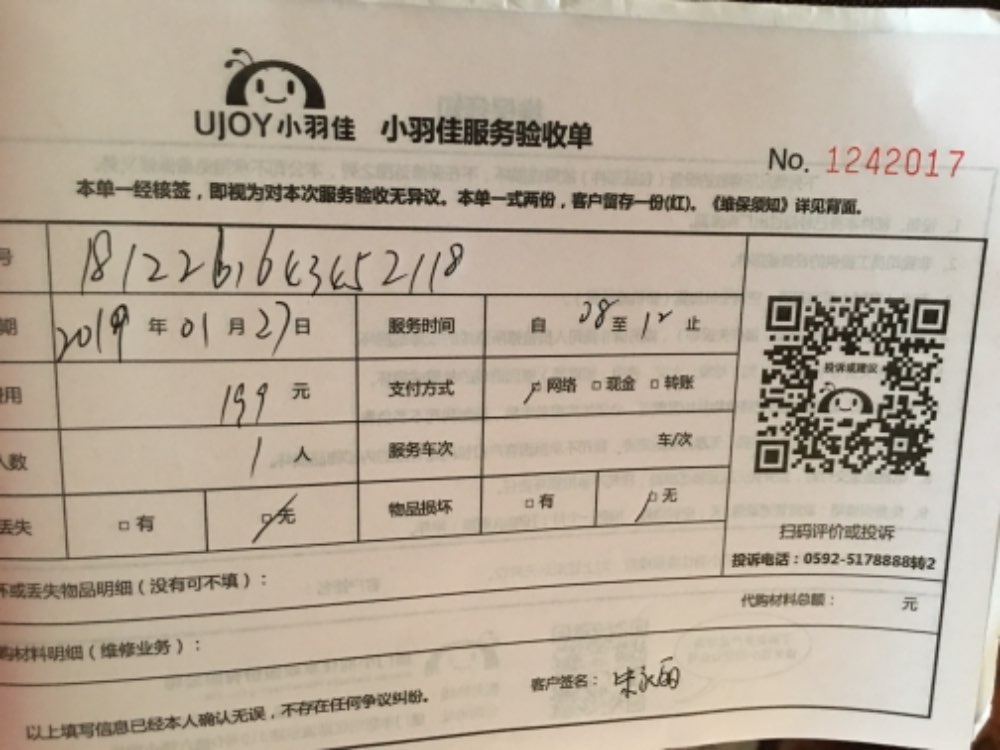 UJOY小羽佳 小羽佳服务验收单
No. 1242017
本单一经核签，即视为对本次服务验收无异议。本单一式两份，客户留存一份(红)。《维保须知》详见背面。
号 1812261643452118
期 2019 年 01 月 27 日 服务时间 自 08 至 12 止
费用 199 元 支付方式 网络 □ 现金 □ 转账
人数 1 人 服务车次 车/次
丢失 □ 有 □ 无 物品损坏 □ 有 □ 无
投诉或建议
扫码评价或投诉
投诉电话：0592-5178888转2
坏或丢失物品明细（没有可不填）：
代购材料总额： 元
购材料明细（维修业务）：
以上填写信息已经本人确认无误，不存在任何争议纠纷。 客户签名：